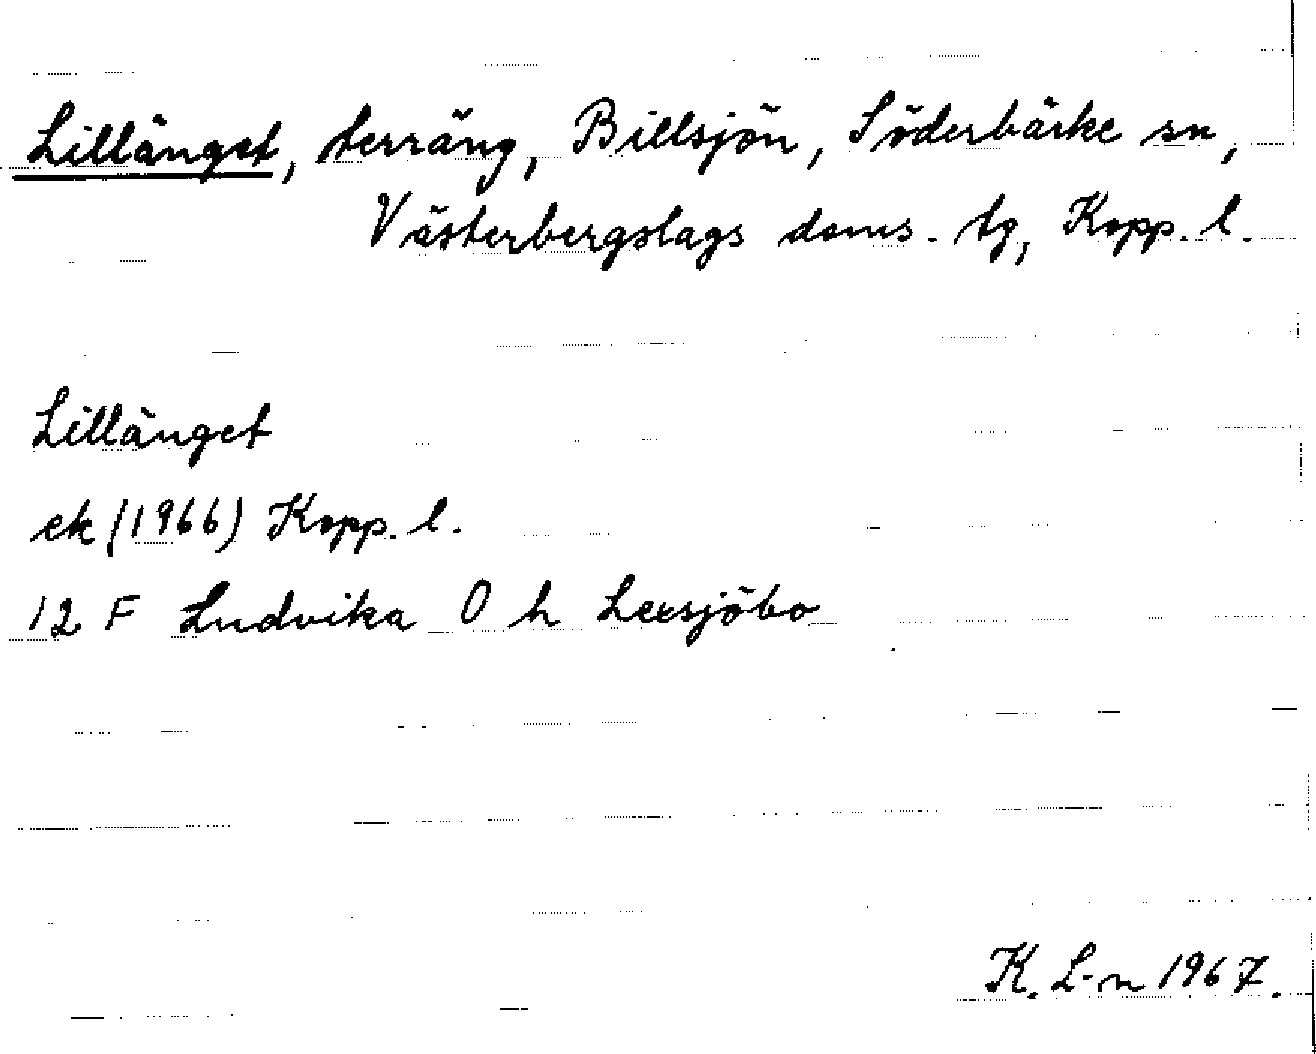 Lillänget, terräng, Billsjön, Söderbärke sn,
Västerbergslags doms. tg, Kopp. l.
Lillänget
ek (1966) Kopp. l.
12 F Ludvika 0 h Leesjöbo
K. L-n 1967.